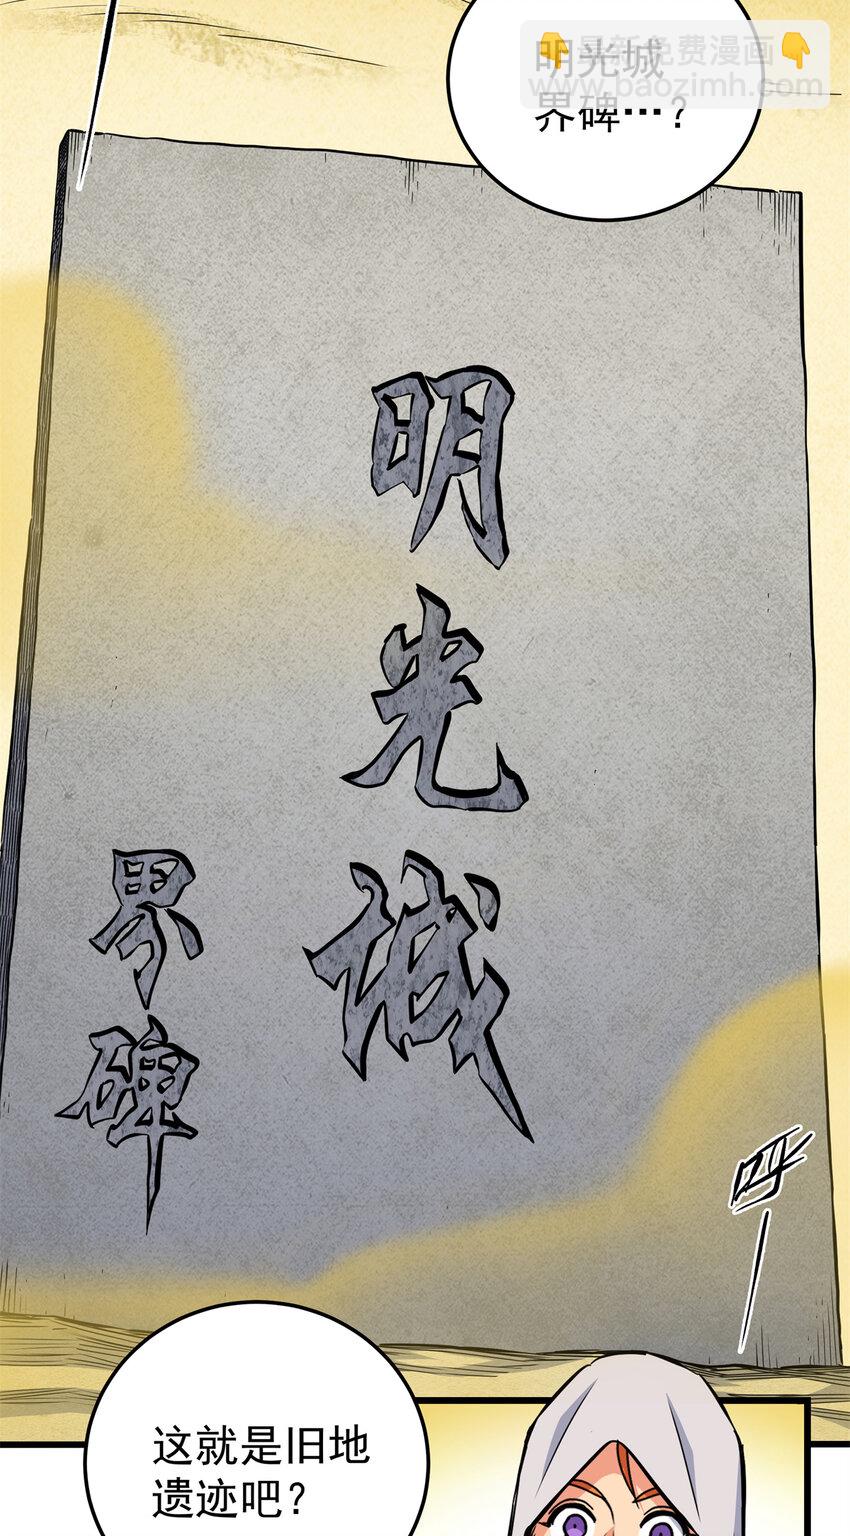 👇最新免费漫画👇
www.baozimh.com
明光城
界碑…？
明光城
界碑
呼
这就是旧地
遗迹吧？